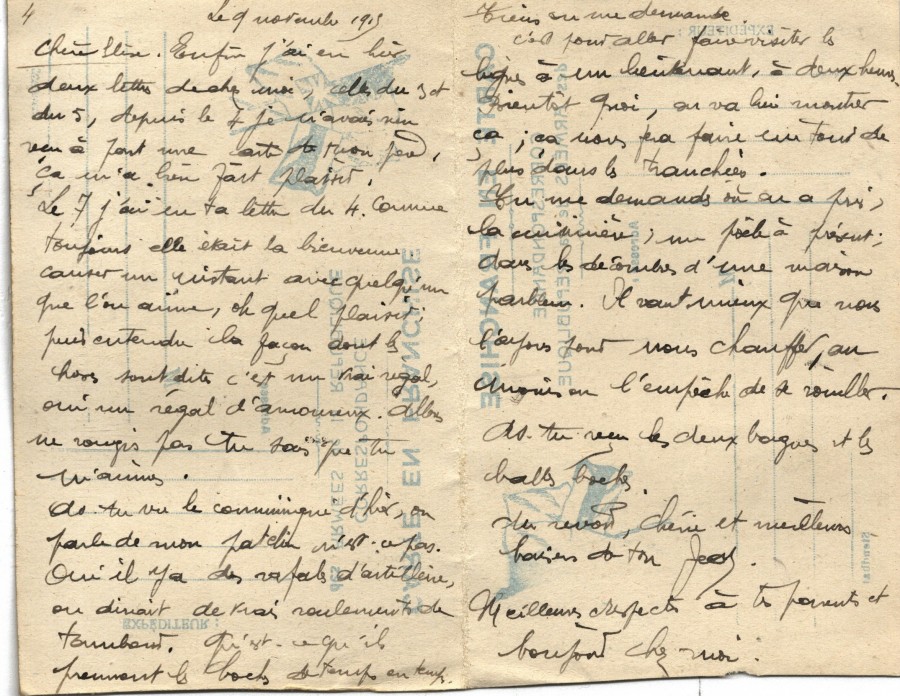 4
Le 9 novembre 1915
Chère Line. Enfin j'ai eu hier
deux lettres de chez moi, celles du 3 et
du 5, depuis le 4 je n'avais rien
reçu à part une carte de mon père,
ça m'a bien fait plaisir.
Le 7 j'ai eu ta lettre du 4. Comme
toujours elle était la bienvenue
causer un instant avec quelqu'un
que l'on aime, oh quel plaisir;
puis entendre la façon dont les
choses sont dites c'est un vrai régal,
oui un régal d'amoureux. Allons
ne rougis pas tu sais que tu
m'aimes.
As-tu vu le communiqué d'hier, on
parle de mon patelin n'est-ce pas.
Oui il y a des rafales d'artillerie,
on dirait de vrais roulements de
tambour. Qu'est-ce qu'il
prennent les boches de temps en temps.
Tiens on me demande.
c'est pour aller faire visiter les
lignes à un lieutenant, à deux heures
bientôt quoi, on va lui montrer
ça; ça nous fera faire un tour de
plus dans les tranchées.
Tu me demandes où on a pris,
la cuisinière; un poêle à présent;
dans les décombres d'une maison
parbleu. Il vaut mieux que nous
l'ayons pour nous chauffer, au
moins on l'empêche de se rouiller.
As-tu reçu les deux bagues et les
balles boches.
Au revoir, chérie et meilleurs
baisers de ton
Meilleurs respects à tes parents et
bonjour chez moi.
CARTE EN FRANCHISE
CORRESPONDANCE
des ARMÉES de la RÉPUBLIQUE
EXPÉDITEUR :
Adresse